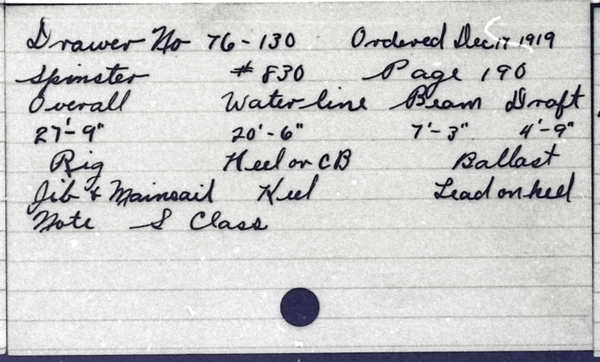 Drawer No 76-130 Ordered Dec 17 1919
Spinster #830 Page 190
Overall Waterline Beam Draft
27'-9" 20'-6" 7'-3" 4'-9"
Rig Keel or CB Ballast
Jib & Mainsail Keel Lead on keel
Note S Class